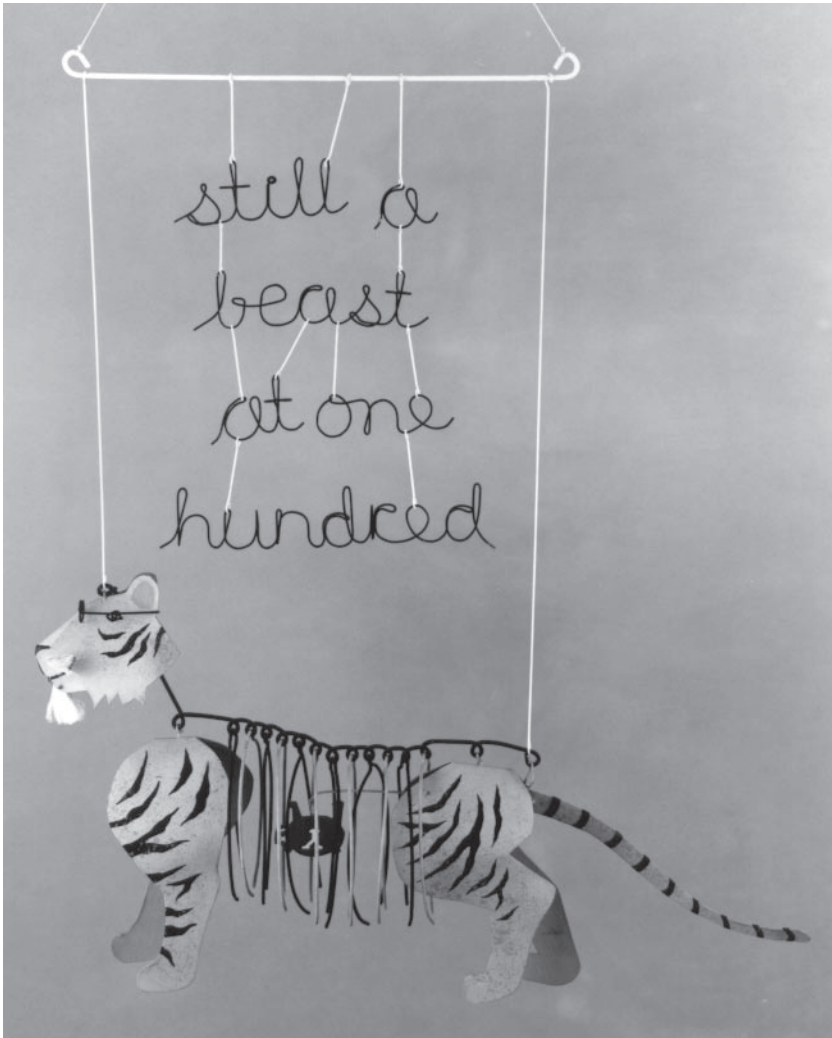 still a
beast
at one
hundred